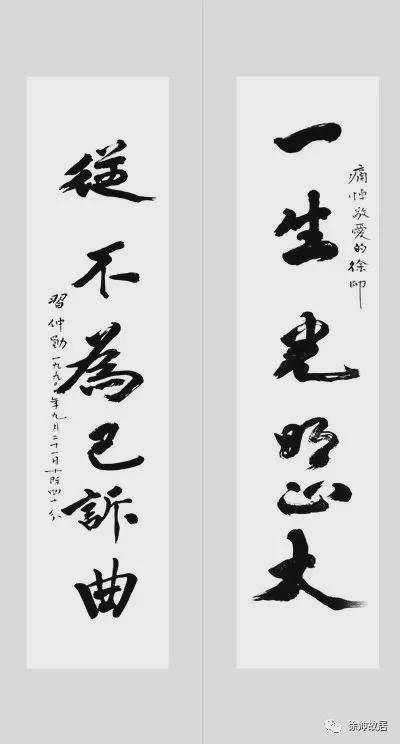 痛悼敬愛的徐帅
一生光明正大
從不為己訴曲
習仲勛 一九九〇年九月二十一日十时四十分
徐帅故居